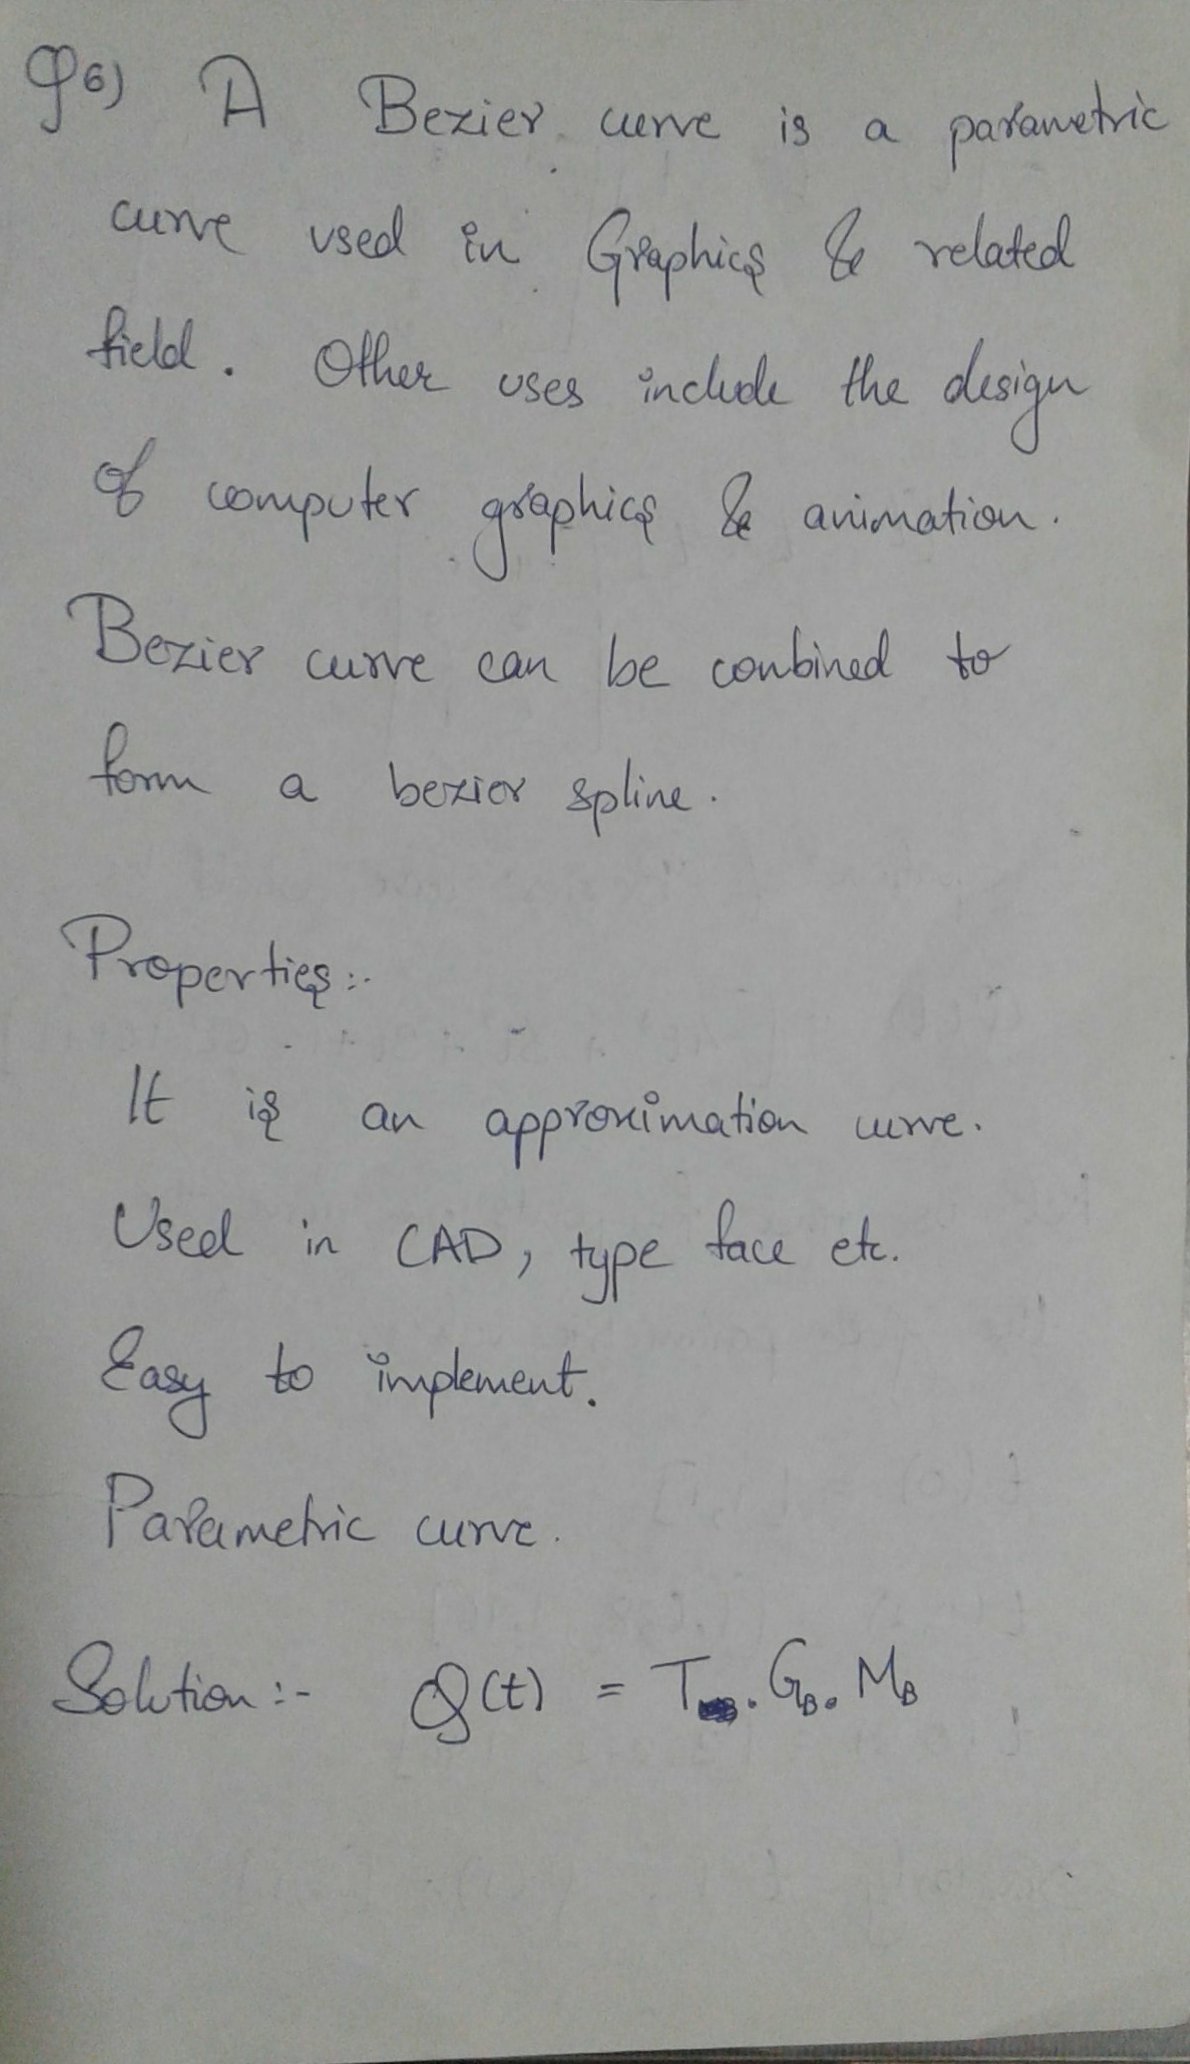 Q6) A Bezier curve is a parametric
curve used in Graphics & related
field. Other uses include the design
of computer graphics & animation.
Bezier curve can be combined to
form a bezier spline.
Properties:-
It is an approximation curve.
Used in CAD, type face etc.
Easy to implement.
Parametric curve.
Solution:- Q(t) = T . G_B . M_B